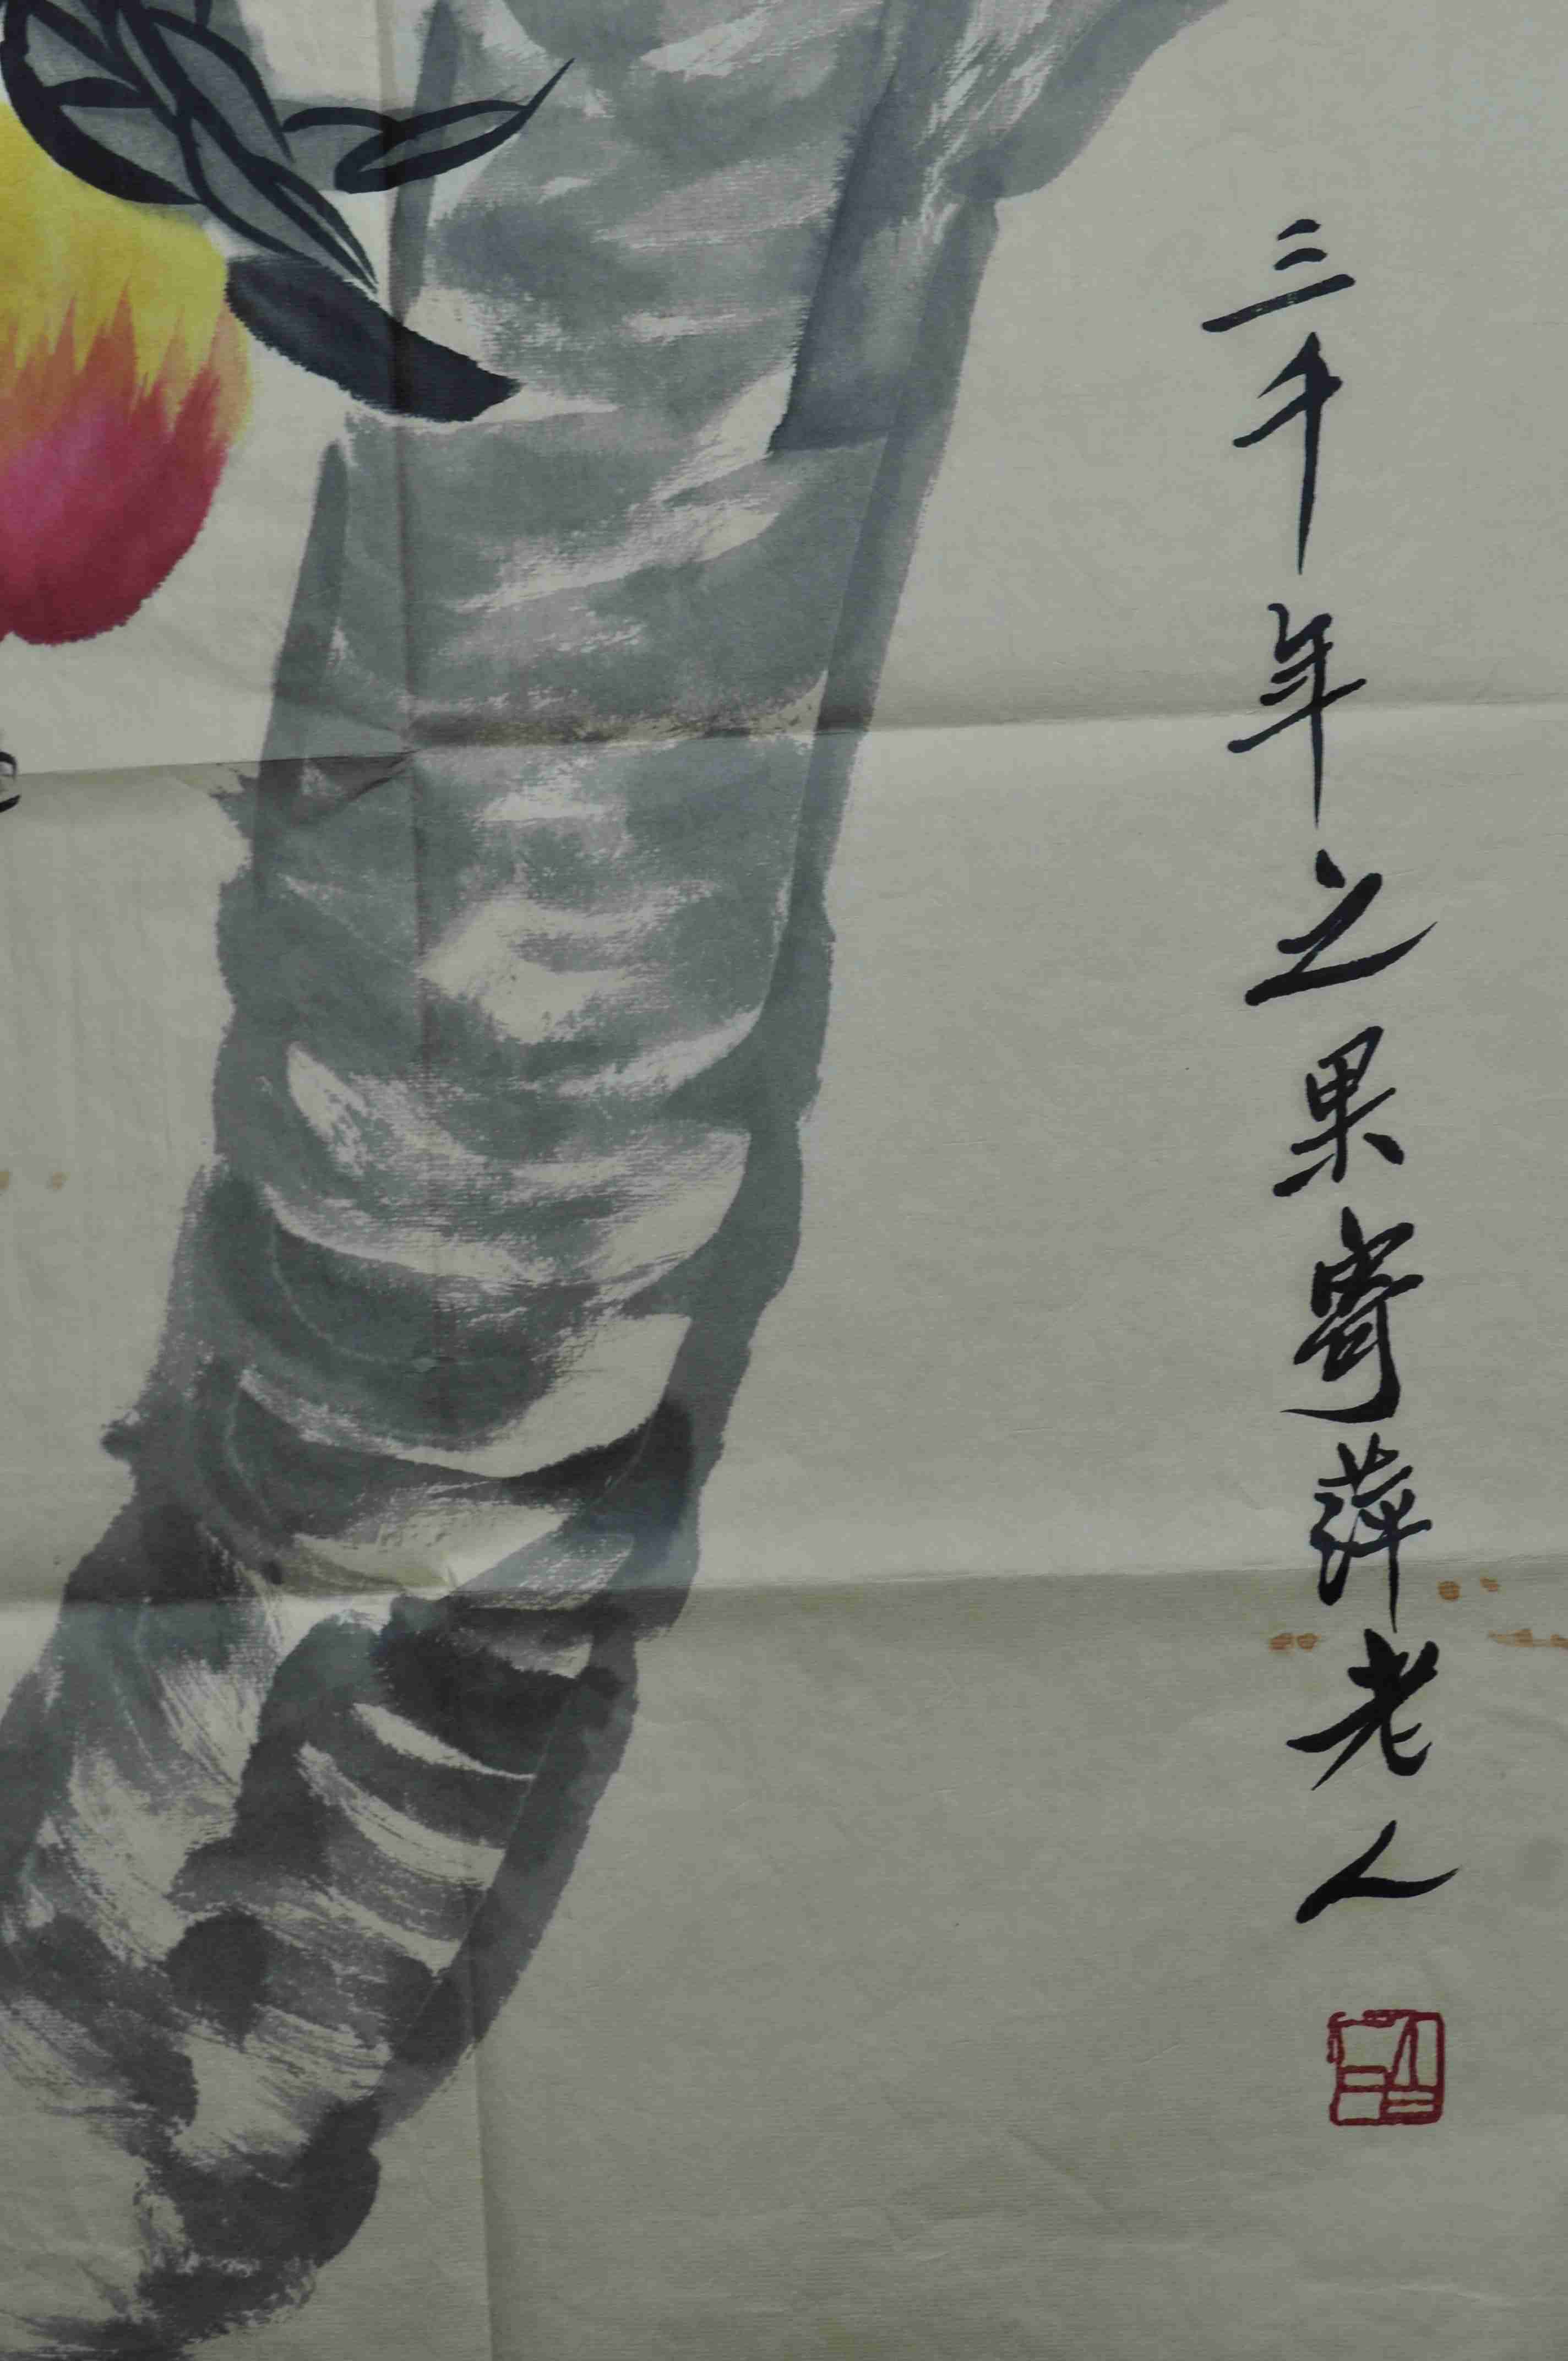 三千年之果寄萍老人